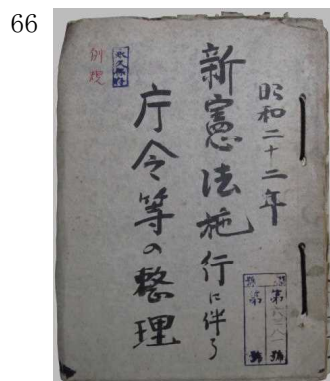 66
昭和二十二年
新憲法施行に伴う
庁令等の整理
永久保存
例規
第 號
第 號